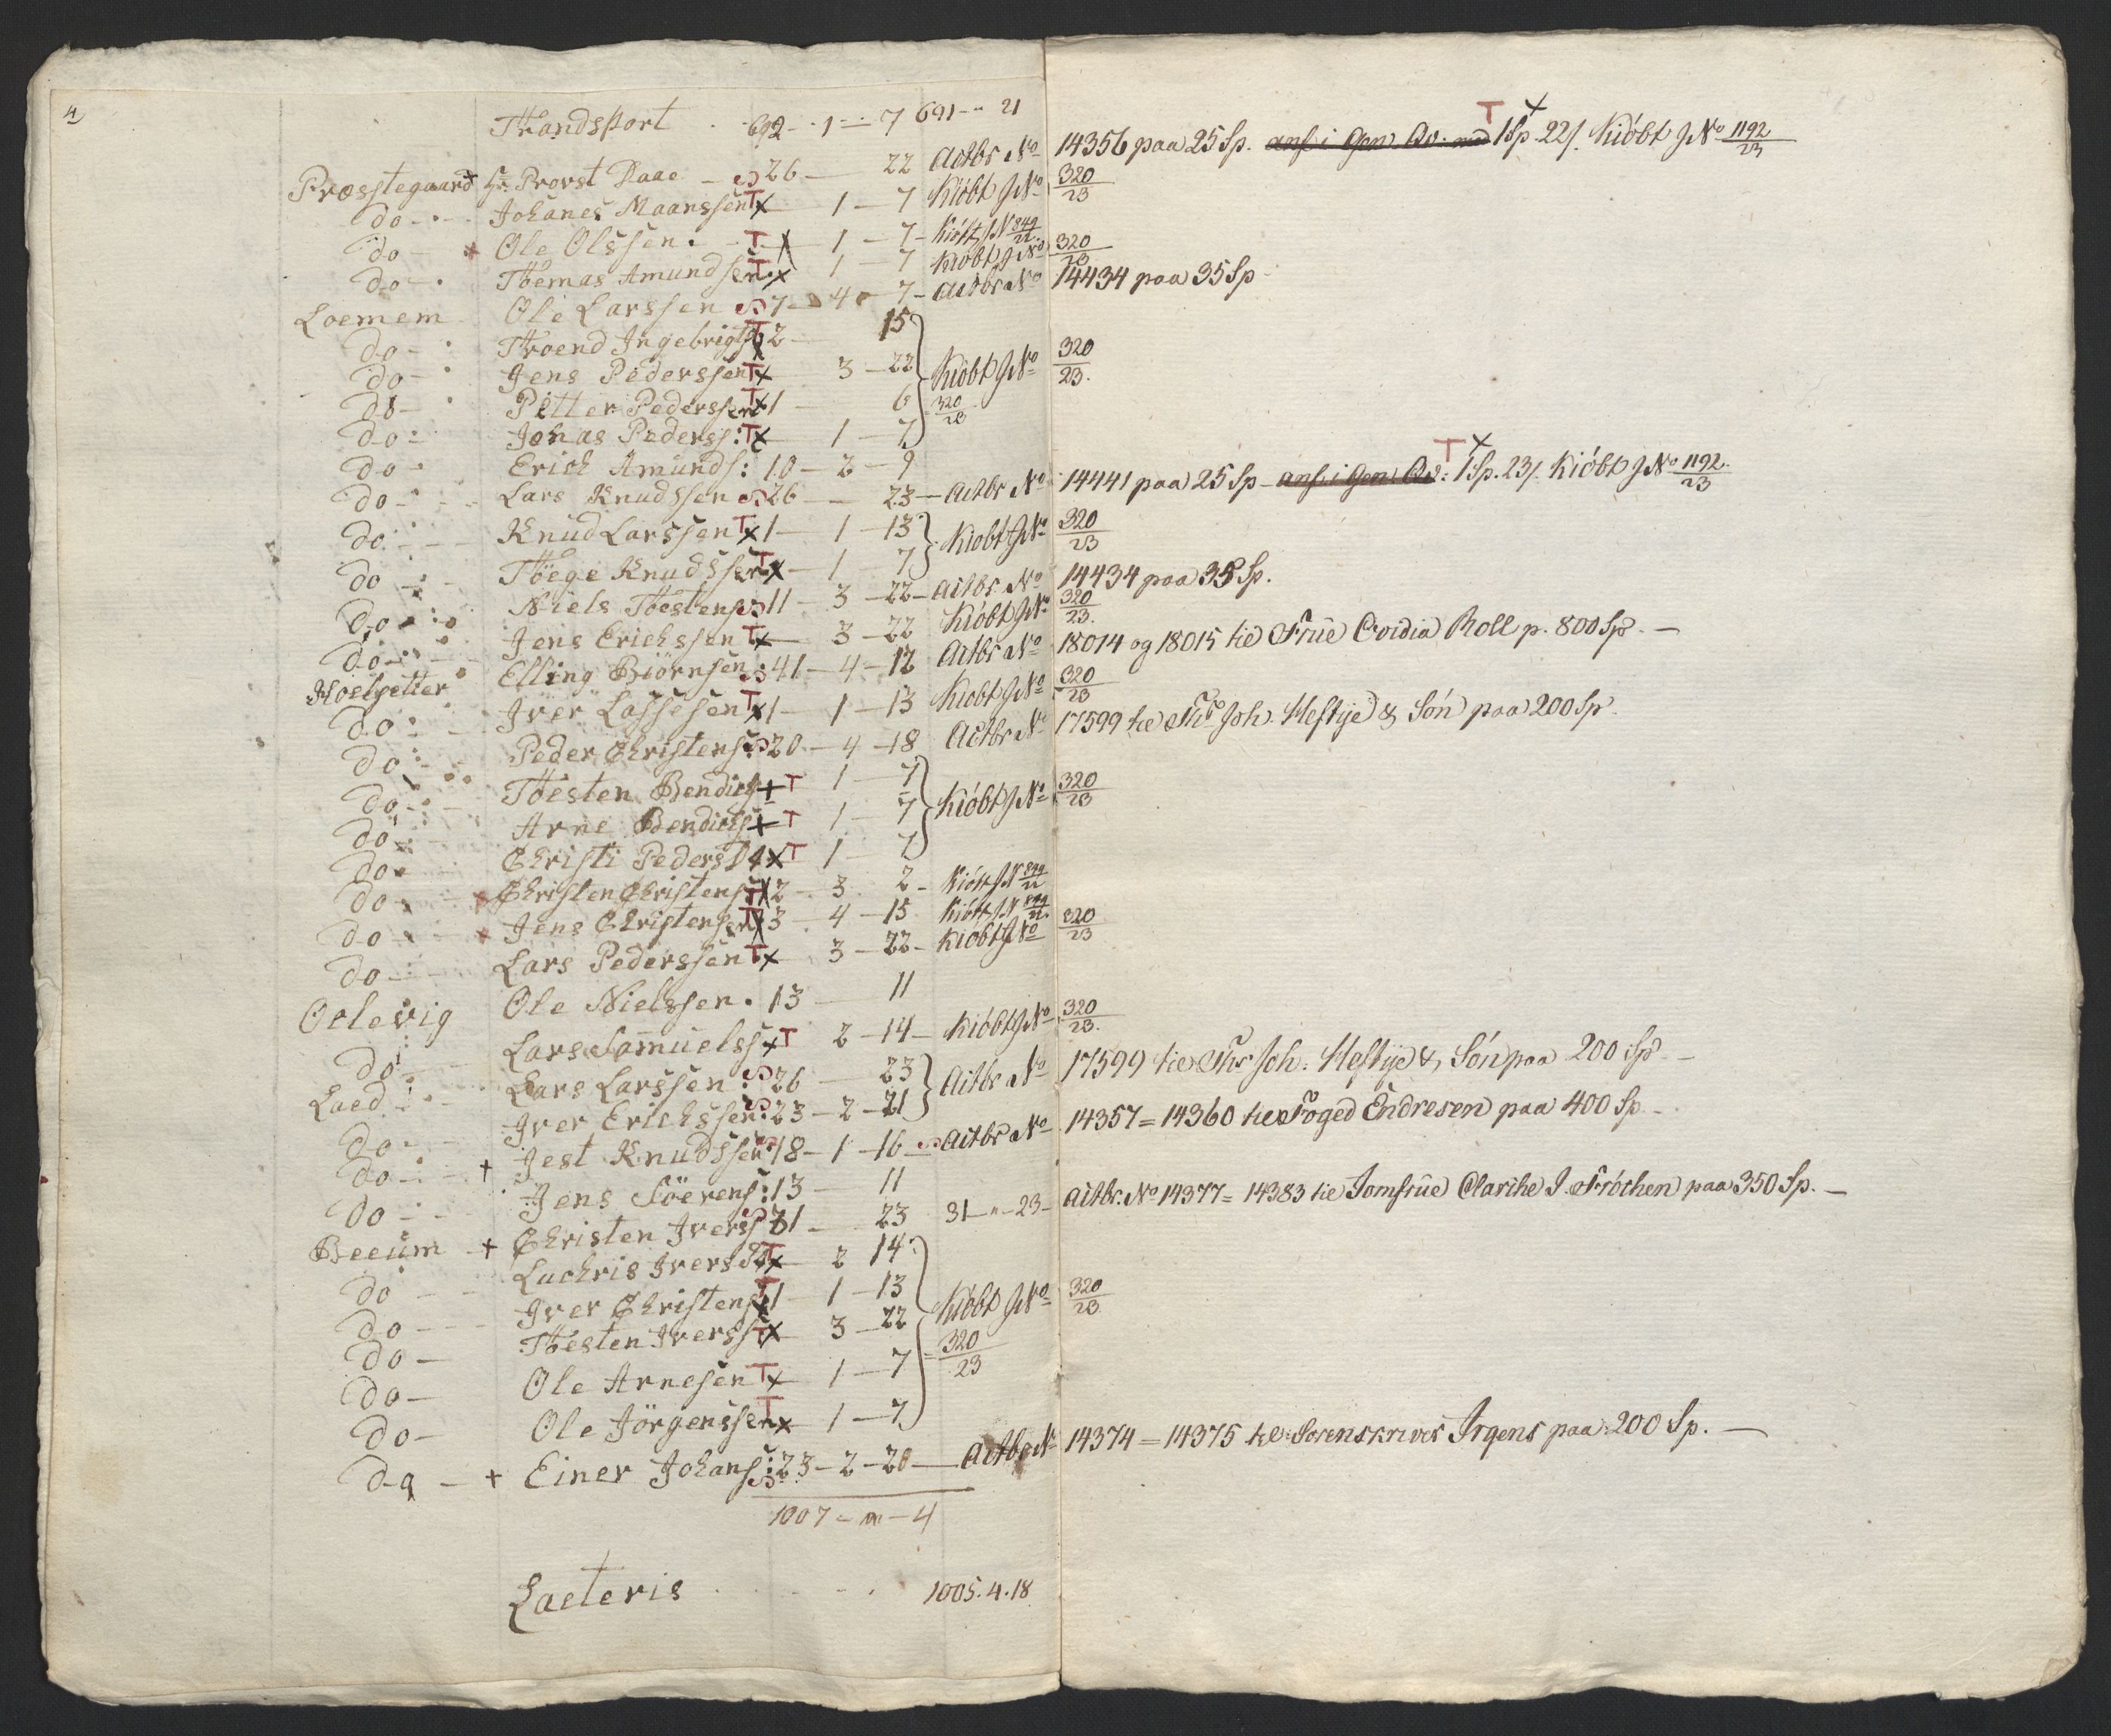 4
Thandsport 692 - 1 - 7 691 - " 21
Præstegaard + Hr. Provst Daae - 26 - 22 Actbr No 14356 paa 25 Sp. anf. i Gen. Qv: med 1 Sp. 22/. Kióbt J No 1192/23
do - Johanes Maanssen T x 1 - 7 Kióbt J No 320/23
do - + Ole Olssen. - T x 1 - 7 - Kióbt J N 849/22.
do - Thomas Amundsen T x 1 - 7 Kióbt J No 320/23
Loemem Ole Larssen 7 - 4 - 7 - Actbr No 14434 paa 35 Sp
do - Thoend Ingebrigts T x 2 - 15
do - Jens Pederssen T x 3 - 22 Kióbt J No 320/23.
do - Pitter Pederssen T x 1 - 6 320/23
do - Johas Pederss: T x 1 - 7
do - Erich Amunds: 10 - 2 - 9
do - Lars Knudssen 26 - 23 - Actbr No 14441 paa 25 Sp - anf. i Gen: Qv: T x 1 Sp. 23/. Kióbt J No 1192./23
do - Knud Larssen T x 1 - 1 - 13 Kióbt J No 320/23
do - Thöge Knudssen T x - 1 - 7
do - Niels Thostens 11 - 3 - 22 - Actbr. No 14434 paa 35 Sp.
do - Jens Erichssen T x 3 - 22 Kióbt J No 320/23.
Elling Biörnsen: 41 - 4 - 12 Actbr No 18014 og 18015 til Frue Ovidia Roll p. 800 Sp. -
do - Iver Lassesen T x 1 - 1 - 13 Kiobt J No 320/23
do - Peder Christens: 20 - 4 - 18 Actbr No 17599 til Ths Joh. Heftye & Són paa 200 Sp.
do - Thosten Bendicts + T 1 - 7
do - Arne Bendicts + T 1 - 7 Kióbt J No 320/23
do - Christi Pedersd x T 1 - 7
do - + Christen Christens T x 2 - 3 2 - Kióbt J N 849/22
do - + Jens Christensen T x 3 - 4 - 15 Kióbt J N 849/22.
do - Lars Pederssen T x 3 - 22 - Kióbt J No 320/23
Oelevig Ole Nielssen. 13 - 11
do - Lars Samuelss x T 2 - 14 - Kióbt J No 320/23.
Laed Lars Larssen: 26 - 23 Actbr No 17599 til Ths Joh: Heftye & Són paa 200 Sp -
do - Iver Erichssen: 23 - 2 - 21
do - + Jest Knudssen 18 - 1 - 16 - Actbr No 14357 = 14360 til Foged Endresen paa 400 Sp -
do - Jens Söerens: 13 - 11
Beeum + Christen Iverss 31 - 23 31 - " - 23 - Actbr. No 14377 = 14383 til Jomfrue Clarihe I. Fróchen paa 350 Sp. -
do - Luchris Iversd T x 2 14
do - Iver Christens T x 1 - 1 - 13 Kióbt J No 320/23
do - Thosten Iverss T x 3 - 22 320/23
do - Ole Arnesen T x 1 - 7
do - Ole Jörgenssen T x 1 - 7
do - + Einer Johans: 23 - 2 - 20 - Actbr N 14374 = 14375 til Sorenskriver Irgens paa 200 Sp. -
1007 - " - 4
Laeteris 1005. 4. 18